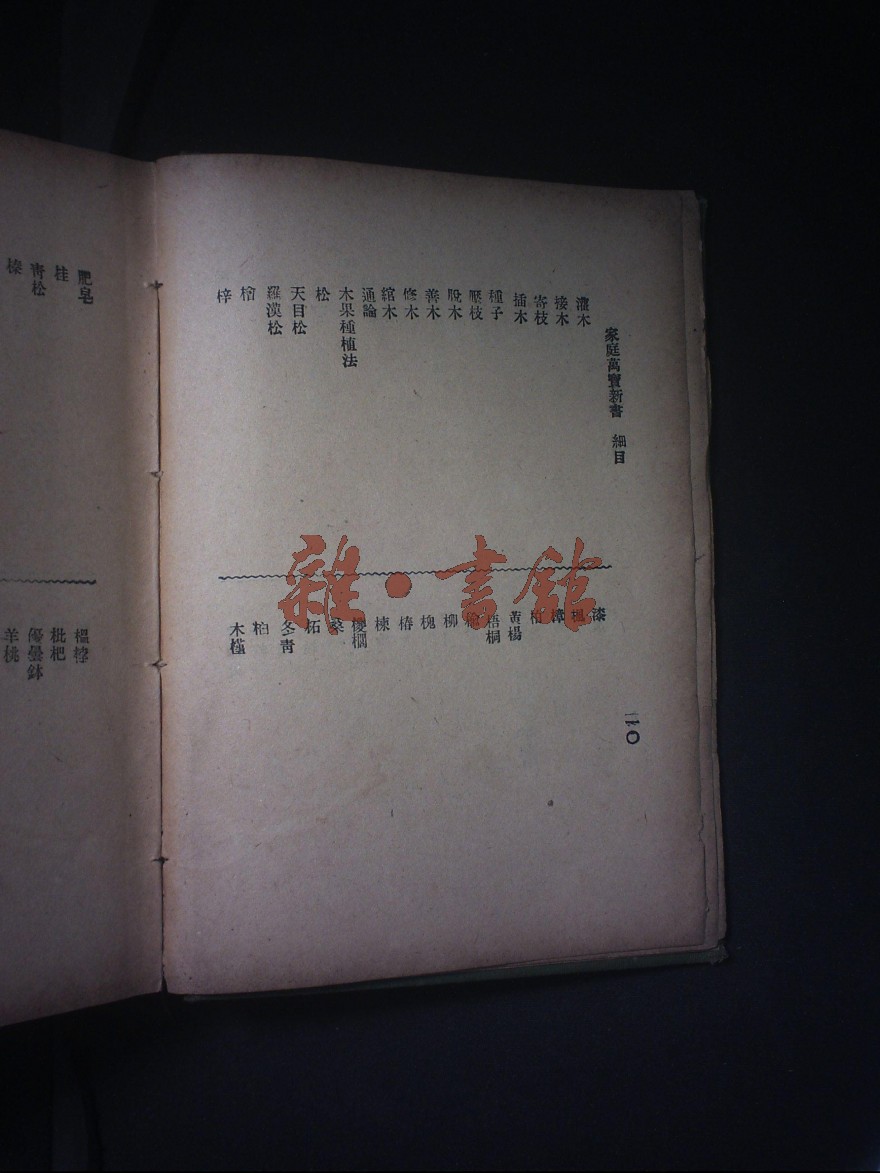 家庭萬寶新書 細目
灌木
接木
寄枝
插木
種子
壓枝
脫木
善木
修木
綰木
通論
木果種植法
松
天目松
羅漢松
檜
梓
漆
楓
樟
黃楊
梧桐
柳
槐
椿
楝
椶櫚
桑
柘
冬青
柏
木槿
二〇
肥皂
桂
青松
榛
榲桲
枇杷
優曇鉢
羊桃
雜·書館